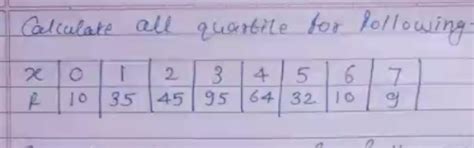 Calculate all quartile for following.
x 0 1 2 3 4 5 6 7
f 10 35 45 95 64 32 10 9